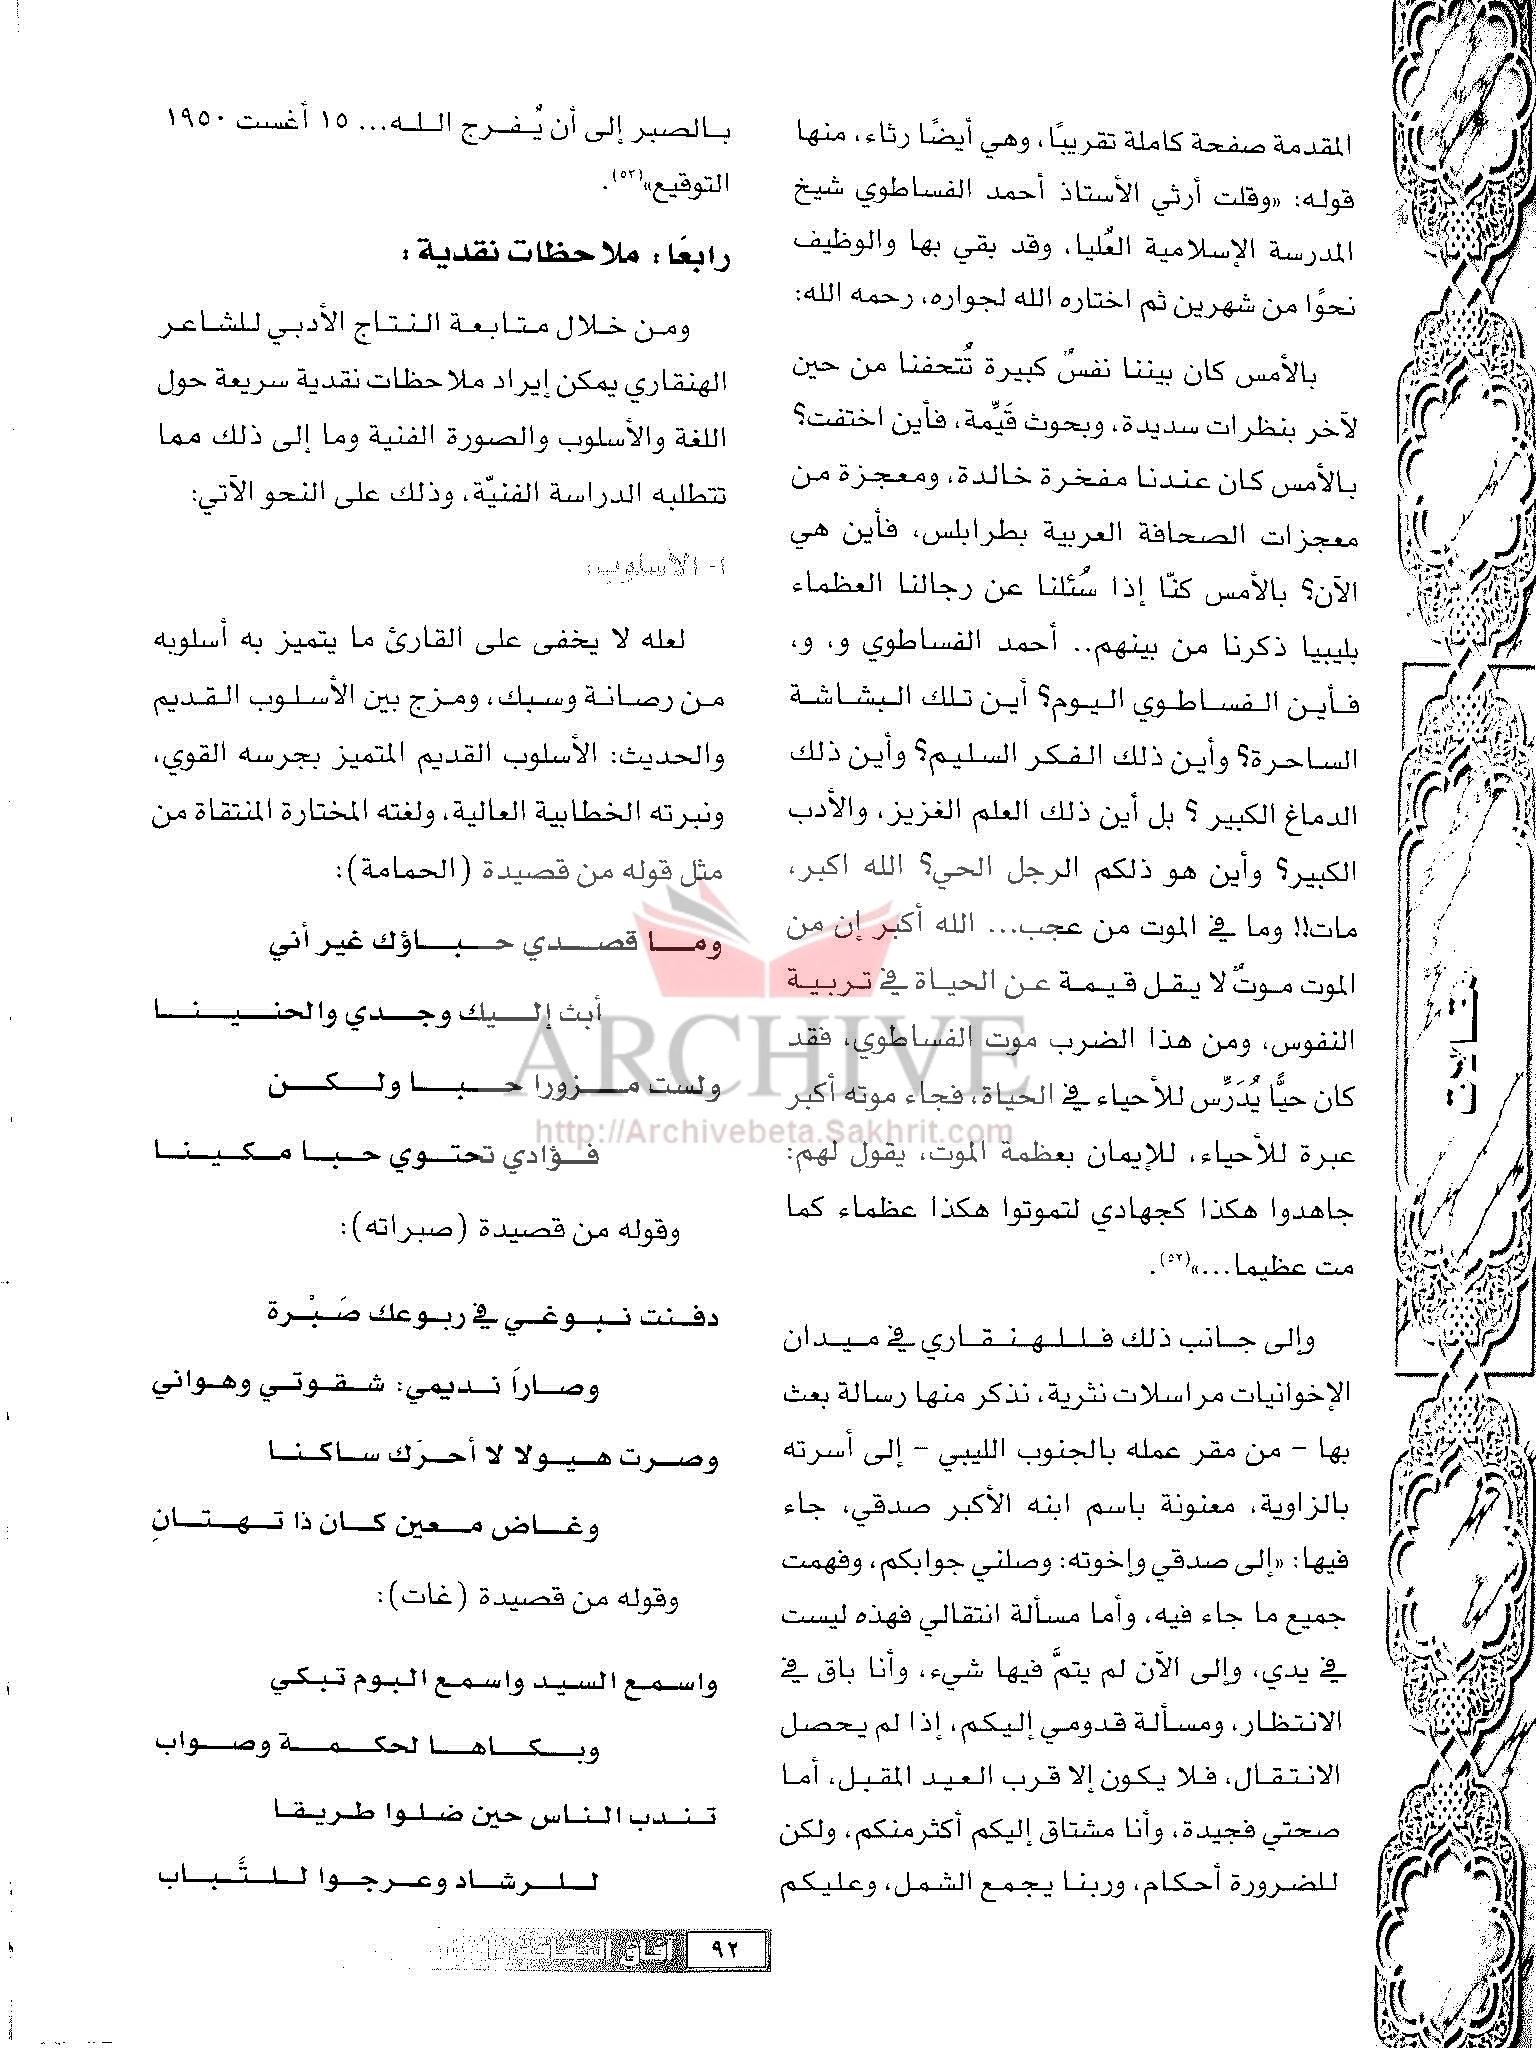 المقدمة صفحة كاملة تقريبًا، وهي أيضًا رثاء، منها
قوله: «وقلت أرثي الأستاذ أحمد الفساطوي شيخ
المدرسة الإسلامية العُليا، وقد بقي بها والوظيف
نحوًا من شهرين ثم اختاره الله لجواره، رحمه الله:
بالأمس كان بيننا نفسٌ كبيرة تُتحفنا من حين
لآخر بنظرات سديدة، وبحوث قَيِّمة، فأين اختفت؟
بالأمس كان عندنا مفخرة خالدة، ومعجزة من
معجزات الصحافة العربية بطرابلس، فأين هي
الآن؟ بالأمس كنّا إذا سُئلنا عن رجالنا العظماء
بليبيا ذكرنا من بينهم.. أحمد الفساطوي و، و،
فأين الفساطوي اليوم؟ أين تلك البشاشة
الساحرة؟ وأين ذلك الفكر السليم؟ وأين ذلك
الدماغ الكبير ؟ بل أين ذلك العلم الغزيز، والأدب
الكبير؟ وأين هو ذلكم الرجل الحي؟ الله اكبر،
مات!! وما في الموت من عجب... الله أكبر إن من
الموت موتٌ لا يقل قيمة عن الحياة في تربية
النفوس، ومن هذا الضرب موت الفساطوي، فقد
كان حيًّا يُدَرِّس للأحياء في الحياة، فجاء موته أكبر
عبرة للأحياء، للإيمان بعظمة الموت، يقول لهم:
جاهدوا هكذا كجهادي لتموتوا هكذا عظماء كما
مت عظيما...»(٥٢).
وإلى جانب ذلك فللهنقاري في ميدان
الإخوانيات مراسلات نثرية، نذكر منها رسالة بعث
بها - من مقر عمله بالجنوب الليبي - إلى أسرته
بالزاوية، معنونة باسم ابنه الأكبر صدقي، جاء
فيها: «إلى صدقي وإخوته: وصلني جوابكم، وفهمت
جميع ما جاء فيه، وأما مسألة انتقالي فهذه ليست
في يدي، وإلى الآن لم يتمَّ فيها شيء، وأنا باق في
الانتظار، ومسألة قدومي إليكم، إذا لم يحصل
الانتقال، فلا يكون إلا قرب العيد المقبل، أما
صحتي فجيدة، وأنا مشتاق إليكم أكثرمنكم، ولكن
للضرورة أحكام، وربنا يجمع الشمل، وعليكم
بالصبر إلى أن يُفرج الله... ١٥ أغست ١٩٥٠
التوقيع»(٥٣).
رابعًا: ملاحظات نقدية:
ومن خلال متابعة النتاج الأدبي للشاعر
الهنقاري يمكن إيراد ملاحظات نقدية سريعة حول
اللغة والأسلوب والصورة الفنية وما إلى ذلك مما
تتطلبه الدراسة الفنيّة، وذلك على النحو الآتي:
١- الأسلوب:
لعله لا يخفى على القارئ ما يتميز به أسلوبه
من رصانة وسبك، ومزج بين الأسلوب القديم
والحديث: الأسلوب القديم المتميز بجرسه القوي،
ونبرته الخطابية العالية، ولغته المختارة المنتقاة من
مثل قوله من قصيدة (الحمامة):
وما قصدي حباؤك غير أني
أبث إليك وجدي والحنينا
ولست مزورا حبا ولكن
فؤادي تحتوي حبا مكينا
وقوله من قصيدة (صبراته):
دفنت نبوغي في ربوعك صَبْرة
وصارَا نديمي: شقوتي وهواني
وصرت هيولا لا أحرّك ساكنا
وغاض معين كان ذا تهتانِ
وقوله من قصيدة (غات):
واسمع السيد واسمع البوم تبكي
وبكاها لحكمة وصواب
تندب الناس حين ضلوا طريقا
للرشاد وعرجوا للتَّباب
مقالات
٩٢
آفاق الثقافة
ARCHIVE
http://Archivebeta.Sakhrit.com